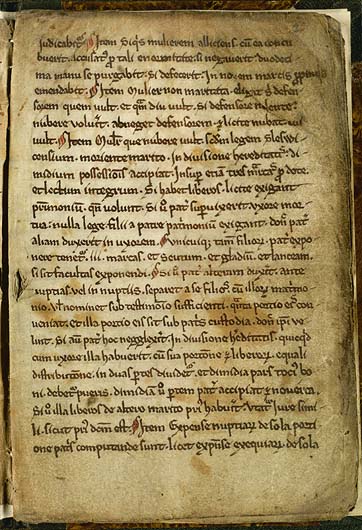 iudicabit᷒. Item Siq̇s mulierem alliciens cū ea concu
buerit. accusat᷒ p̱ tali enormitate. si negauerit. duode
ma manu se purgabit. Si defecerit. In nouem marcis
emendabit. Item Mulier non maritata eligat
sorem quem uult. et q̄m diu uult. Si defensore
nubere uoluerit. abneget defensorem. et licite nubat. cui
uult. Item Mulier que nubere uult. scdm legem Sleswi
censium. moriente marito. In diuisione hereditatis. di
midium possessionis accipiat. Insup etiā tres marcas p dote.
et lectum integrum. Si habet liberos. licite exigant
patrimoniū. qn̄ uolunt. Si u pat sup uixerit uxore mor
tua. nulla lege. filii a patre patrimoniū exigant. donec pat
aliam duxerit in uxorem. Unicuiq; tam filiorum pat expo
nere tenet. iii. marcas. et Scutum. et gladiū. et lanceam.
si sit facultas exponendi. Si u pat alteram duxerit. ante
nuptias. uel in nuptiis. separet a se filios. cū illorum matrimo
nio. Vl nominet sub testimonio sufficienti. quanta portio eos con
ueniat. et illa portio eis sit sub patris custodia. donec ipi ue
lint. Si aū pat hoc neglexerit. In diuisione hereditatis. quicqd
cum uxore illa habuerit. cū sua portione et liberorum. equali
distributione. in duas ptes diuidet. et dimidia pars tocius bo
ni. debet pueris. dimidiā u partem pat accipiat et nouerca.
Si u illa liberos de altero marito pri habuit. utatur iure simi
li. sicut pri dcm est. Item Expense nuptiarum de sola porti
one patris computande sunt. licet expense exequiarum de sola